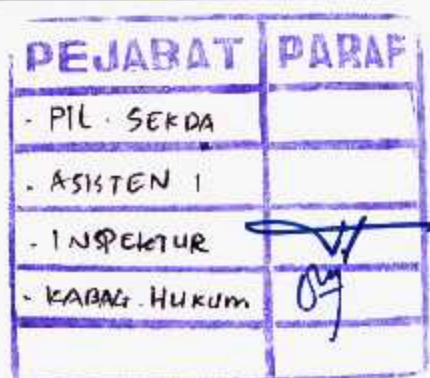 PEJABAT PARAF
- PIL. SEKDA
- ASISTEN 1
- INSPEKTUR
- KABAG. HUKUM